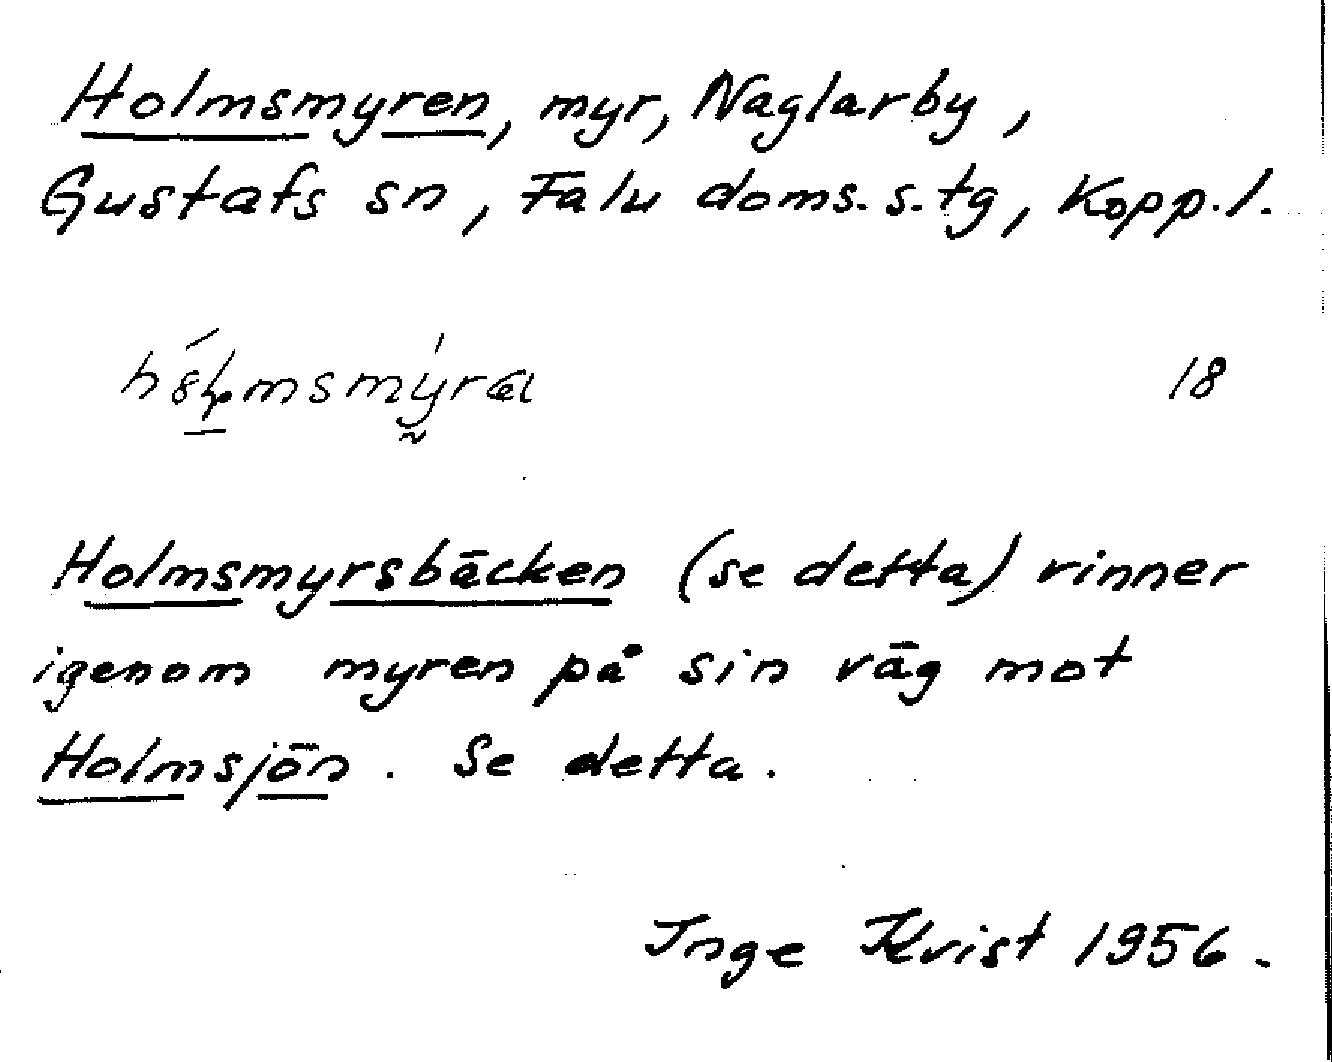 Holmsmyren, myr, Naglarby,
Gustafs sn, Falu doms.s.tg, Kopp.l.
18
Holmsmyrsbäcken (se detta) rinner
igenom myren på sin väg mot
Holmsjön. Se detta.
Inge Kvist 1956.